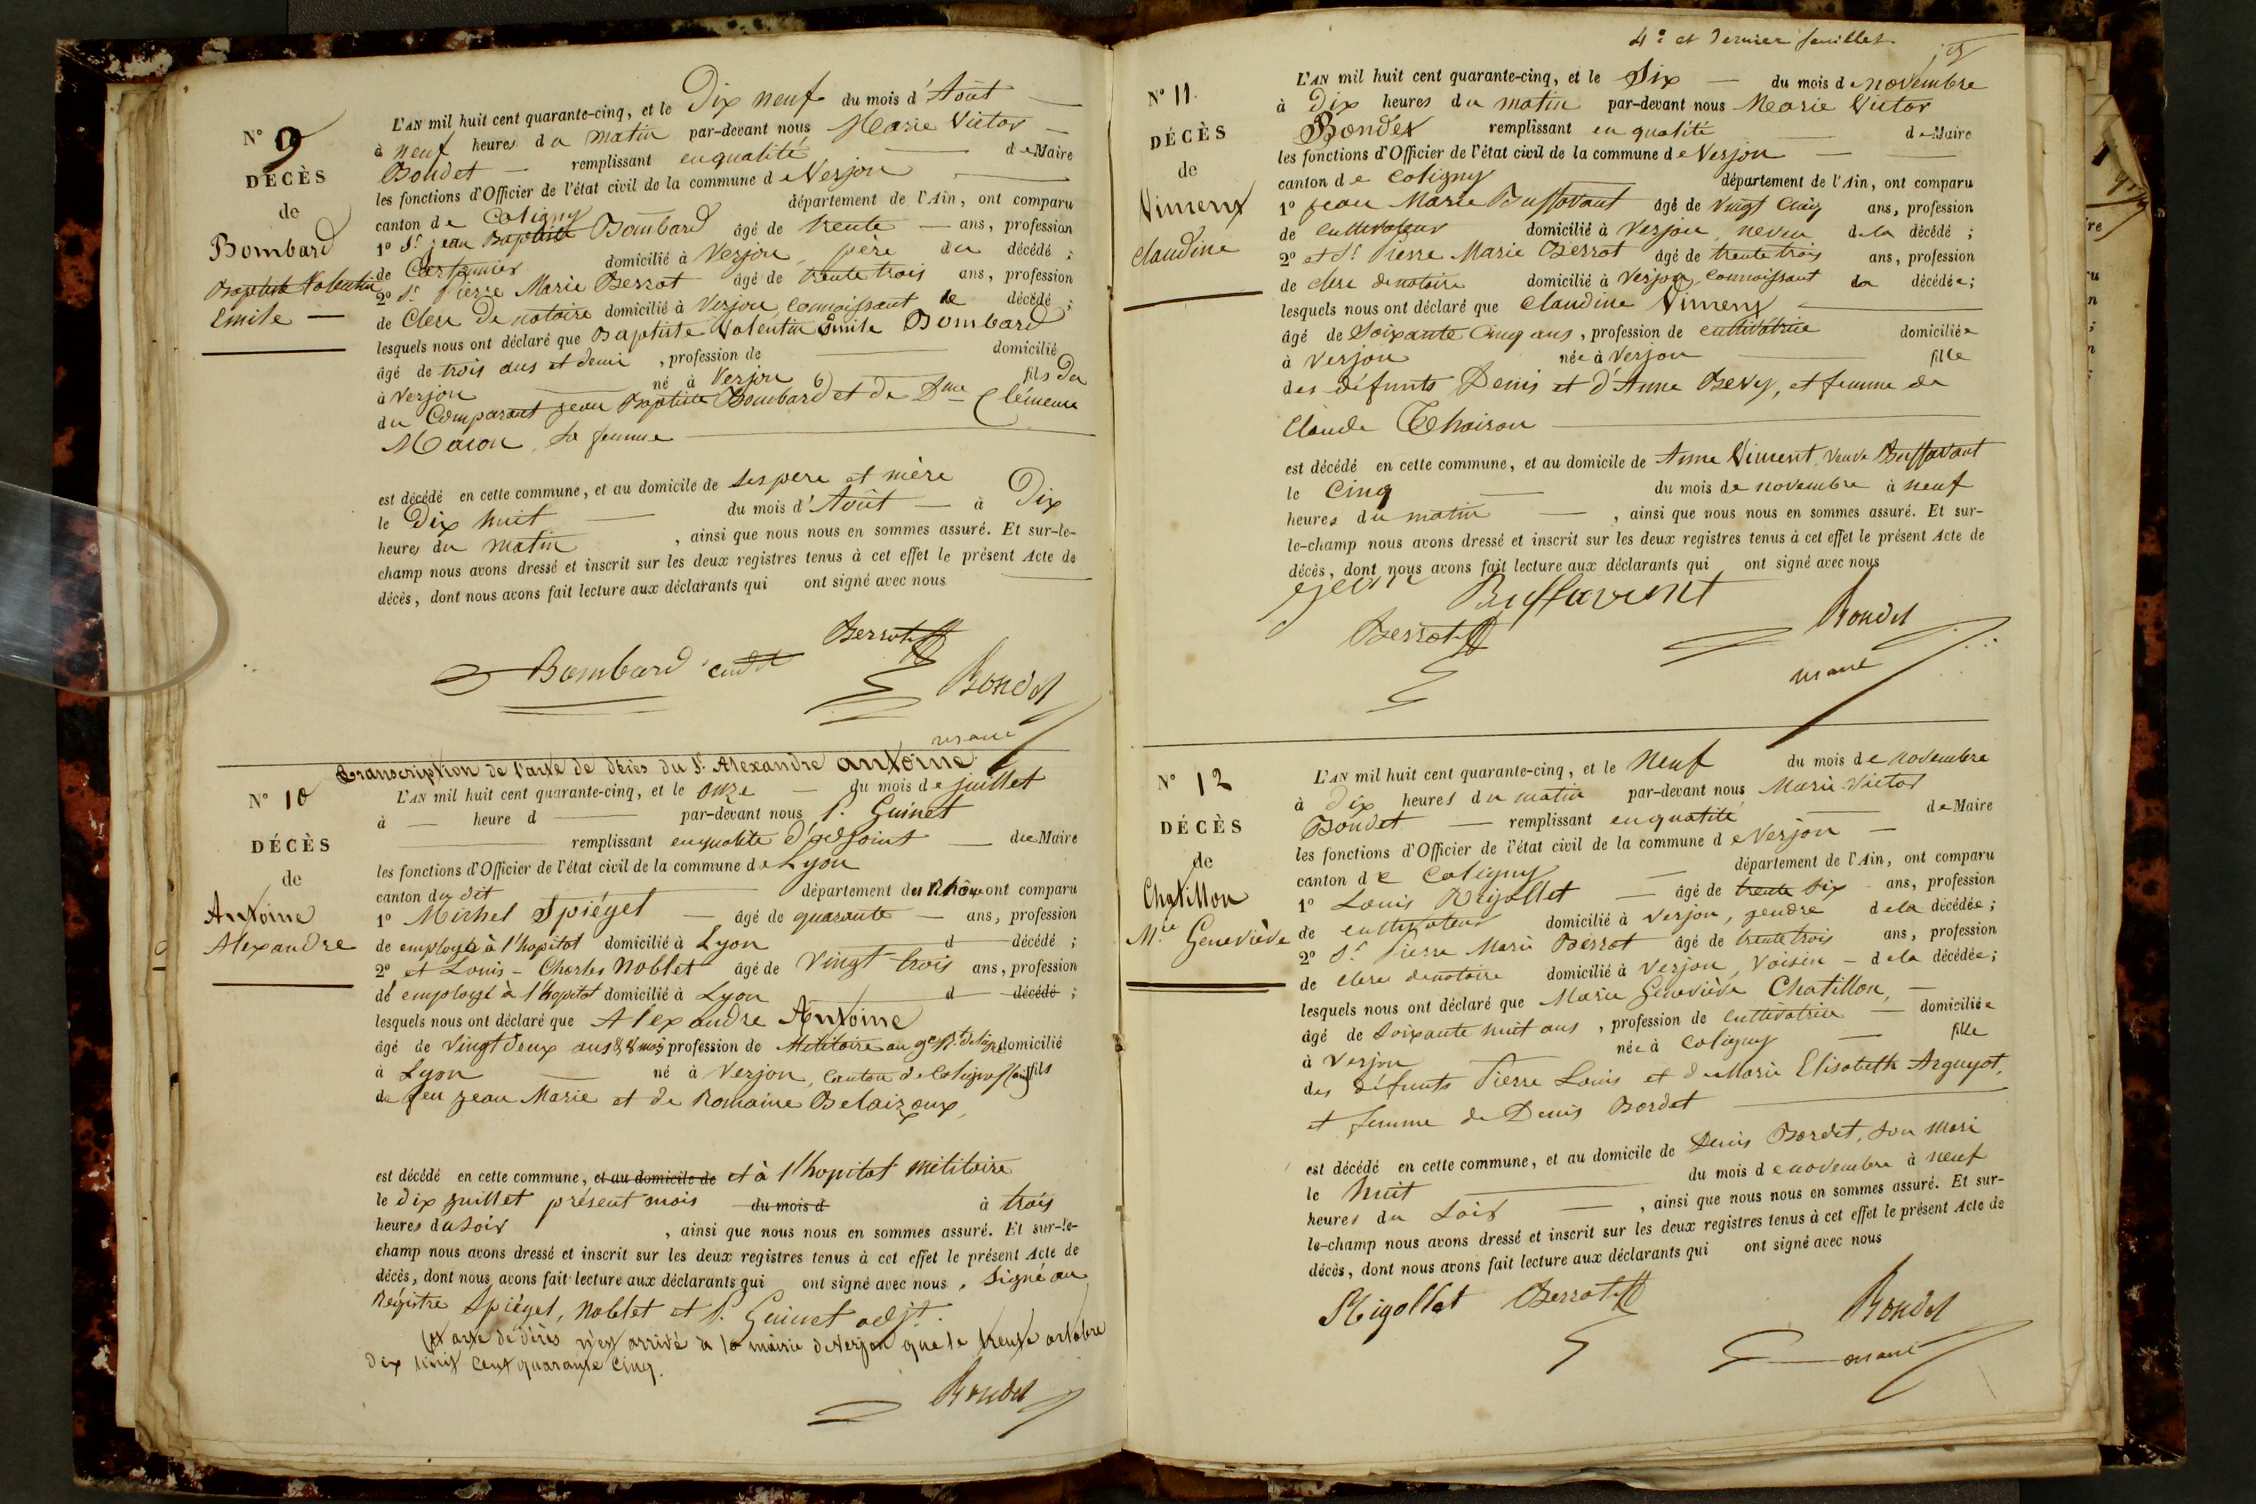 N° 9
DÉCÈS
de
Bombard
Baptiste Valentin
Emile —
L'AN mil huit cent quarante-cinq, et le Dix neuf du mois d'Août —
à neuf heures du matin par-devant nous Marie Victor —
Bondet — remplissant en qualité — de Maire
les fonctions d'Officier de l'état civil de la commune de Verjon —
canton de Coligny département de l'Ain, ont comparu
1° Sr. Jean Baptiste Bombard âgé de trente — ans, profession
de Cartonnier domicilié à Verjon, père du décédé ;
2° Sr. Pierre Marie Berrot âgé de trente trois ans, profession
de Clerc de notaire domicilié à Verjon, connaissant le décédé ;
lesquels nous ont déclaré que Baptiste Valentin Emile Bombard
âgé de trois ans et demi , profession de — domicilié
à Verjon — né à Verjon — fils du
du Comparant Jean Baptiste Bombard et de Dme Clémence
Macon, sa femme —
est décédé en cette commune, et au domicile de ses père et mère
le Dix huit — du mois d'Août — à Dix
heures du matin , ainsi que nous nous en sommes assuré. Et sur-le-
champ nous avons dressé et inscrit sur les deux registres tenus à cet effet le présent Acte de
décès, dont nous avons fait lecture aux déclarants qui ont signé avec nous —
Berrot
Bombard cadet
Bondet
maire
Transcription de l'acte de décès du Sr. Alexandre Antoine
N° 10
DÉCÈS
de
Antoine
Alexandre
L'AN mil huit cent quarante-cinq, et le onze — du mois de juillet
à — heure d — par-devant nous P. Guinet
— remplissant en qualité d'adjoint — du Maire
les fonctions d'Officier de l'état civil de la commune de Lyon
canton du dit — département du Rhône ont comparu
1° Michel Spiégel — âgé de quarante — ans, profession
de employé à l'hopital domicilié à Lyon — d — décédé ;
2° et Louis-Charles Noblet âgé de Vingt trois ans, profession
de employé à l'hopital domicilié à Lyon — d — décédé ;
lesquels nous ont déclaré que Alexandre Antoine
âgé de Vingt deux ans & 8 mois profession de Militaire au 9e Rt. de ligne domicilié
à Lyon — né à Verjon, canton de Coligny (ain) fils
de feu Jean Marie et de Romaine Belaizoux,
est décédé en cette commune, et au domicile de et à l'hopital militaire
le dix juillet présent mois du mois d à trois
heures du soir , ainsi que nous nous en sommes assuré. Et sur-le-
champ nous avons dressé et inscrit sur les deux registres tenus à cet effet le présent Acte de
décès, dont nous avons fait lecture aux déclarants qui ont signé avec nous. Signé au
Régistre Spiégel, Noblet et P. Guinet adjt.
Cet acte de décès n'est arrivé à la mairie de Verjon que le trente octobre
dix huit cent quarante cinq.
Bondet
4e et dernier feuillet
N° 11.
DÉCÈS
de
Vimenx
Claudine
L'AN mil huit cent quarante-cinq, et le Six — du mois de novembre
à Dix heures du matin par-devant nous Marie Victor
Bondet remplissant en qualité — de Maire
les fonctions d'Officier de l'état civil de la commune de Verjon —
canton de Coligny — département de l'Ain, ont comparu
1° Jean Marie Buffavant âgé de Vingt cinq ans, profession
de cultivateur domicilié à Verjon, neveu de la décédé ;
2° et Sr. Pierre Marie Berrot âgé de trente trois ans, profession
de clerc de notaire domicilié à Verjon, connaissant la décédée ;
lesquels nous ont déclaré que Claudine Vimenx —
âgé de Soixante Cinq ans, profession de cultivatrice domiciliée
à Verjon née à Verjon — fille
des défunts Denis et d'Anne Bevey, et femme de
Claude Thoiron —
est décédé en cette commune, et au domicile de Anne Viment, veuve Buffavant
le Cinq — du mois de novembre à neuf
heures du matin — , ainsi que nous nous en sommes assuré. Et sur-
le-champ nous avons dressé et inscrit sur les deux registres tenus à cet effet le présent Acte de
décès, dont nous avons fait lecture aux déclarants qui ont signé avec nous
Jean Buffavent
Berrot
Bondet
maire
N° 12
DÉCÈS
de
Chatillon
Mie Geneviève
L'AN mil huit cent quarante-cinq, et le Neuf du mois de novembre
à Dix heures du matin par-devant nous Marie Victor
Bondet — remplissant en qualité — de Maire
les fonctions d'Officier de l'état civil de la commune de Verjon —
canton de Coligny — département de l'Ain, ont comparu
1° Louis Rigollet — âgé de trente Six ans, profession
de cultivateur domicilié à Verjon, gendre de la décédée ;
2° Sr. Pierre Marie Berrot âgé de trente trois ans, profession
de clerc de notaire domicilié à Verjon, Voisin — de la décédée ;
lesquels nous ont déclaré que Marie Geneviève Chatillon, —
âgé de Soixante huit ans, profession de cultivatrice — domiciliée
à Verjon née à Coligny — fille
des défunts Pierre Louis et de Marie Elisabeth Arguyot,
et femme de Denis Bordet —
est décédé en cette commune, et au domicile de Denis Bordet, son mari
le huit — du mois de novembre à neuf
heures du Soir — , ainsi que nous nous en sommes assuré. Et sur-
le-champ nous avons dressé et inscrit sur les deux registres tenus à cet effet le présent Acte de
décès, dont nous avons fait lecture aux déclarants qui ont signé avec nous
Rigollet Berrot
Bondet
maire